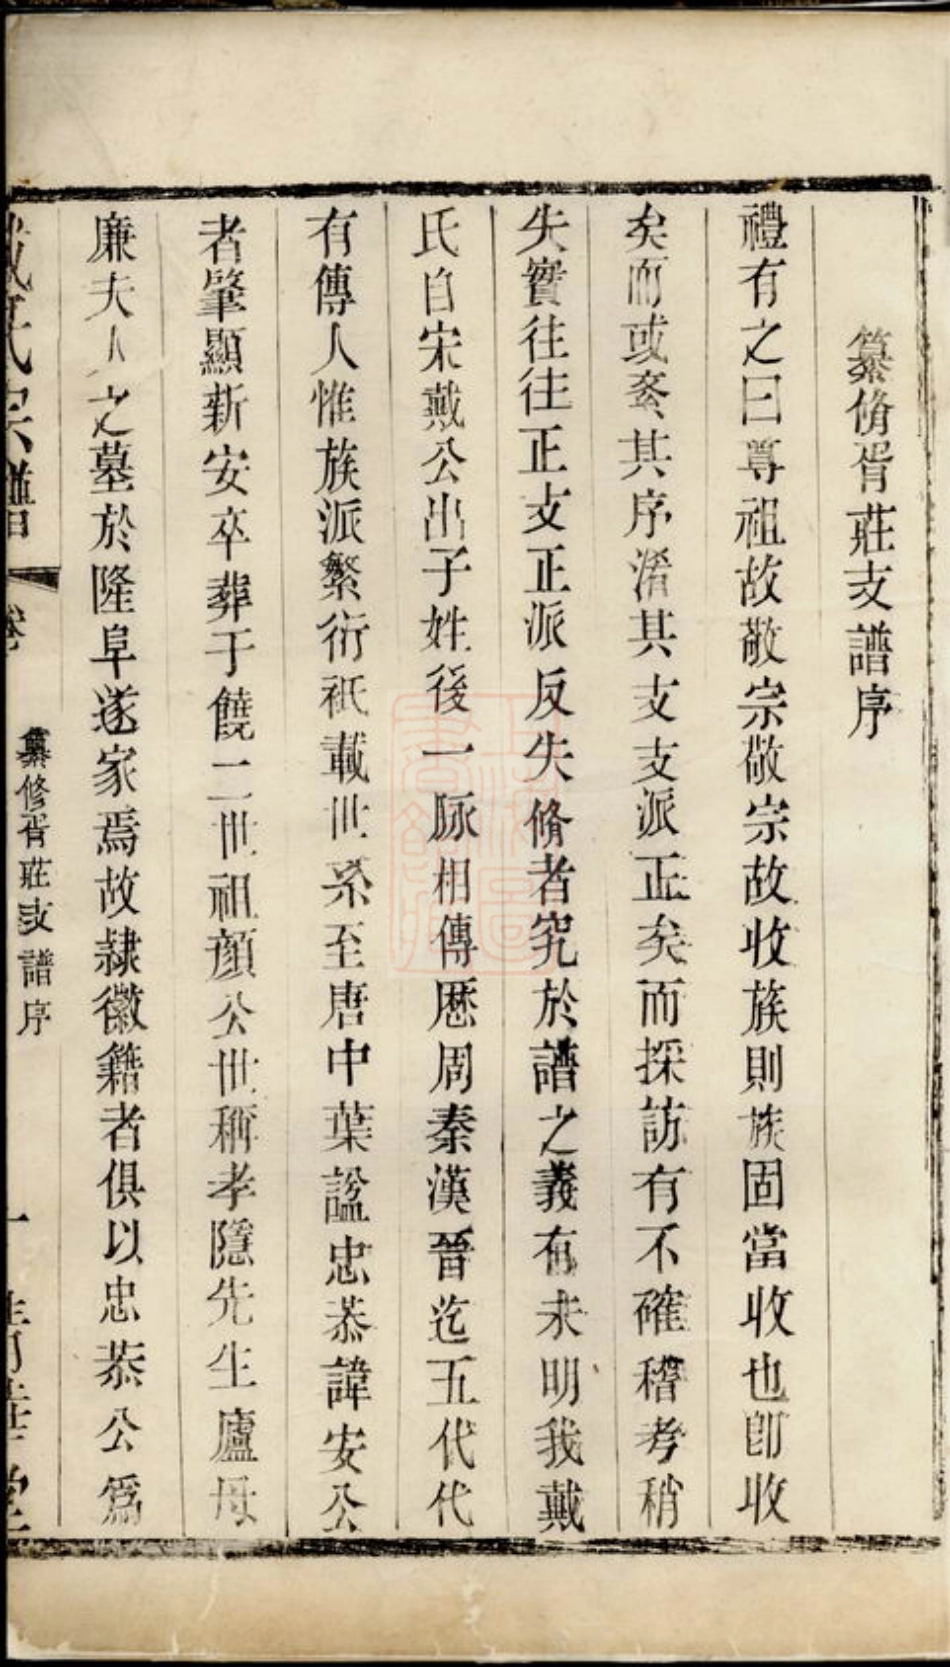 纂脩胥莊支譜序
禮有之曰尊祖故敬宗敬宗故收族則族固當收也卽收
矣而或紊其序淆其支支派正矣而採訪有不確稽考稍
失實往往正支正派反失脩者究於譜之義有未明我戴
氏自宋戴公出子姓後一脉相傳厯周秦漢晉迄五代代
有傳人惟族派繁衍祇載世系至唐中葉諡忠恭諱安公
者肇顯新安卒葬于饒二世祖顔公世稱孝隱先生廬母
廉夫人之墓於隆阜遂家焉故隷徽籍者俱以忠恭公爲
戴氏宗譜 卷 纂修胥莊支譜序 一